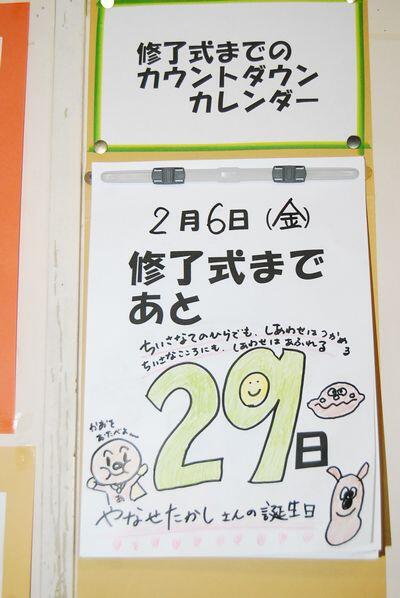 修了式までの
カウントダウン
カレンダー
2月6日(金)
修了式まで
あと
ちいさなてのひらでも、しあわせはつかめる
ちいさなこころにも、しあわせはあふれる
29日
かおを
おたべよ〜
あ
やなせたかしさんの誕生日